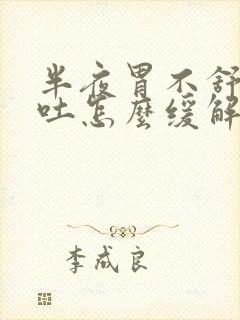 半夜胃不舒
吐怎麼緩解
李成良